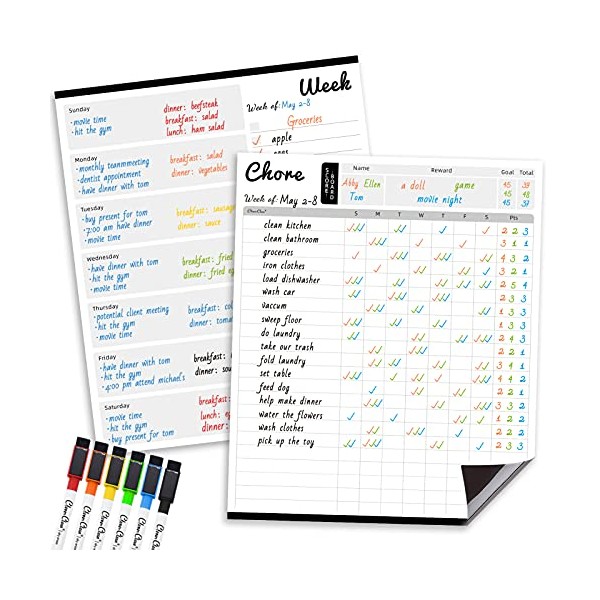 Week
Week of: May 2-8
Groceries
apple
Sunday
movie time
hit the gym
dinner: beefsteak
breakfast: salad
lunch: ham salad
Monday
monthly teammeeting
dentist appointment
have dinner with tom
breakfast: salad
dinner: vegetables
Tuesday
buy present for tom
7:00 am have dinner
movie time
breakfast: sausage
dinner: sauce
Wednesday
have dinner with tom
hit the gym
movie time
breakfast: fried
dinner: fried
Thursday
potential client meeting
hit the gym
movie time
breakfast:
dinner:
Friday
have dinner with tom
hit the gym
4:00 pm attend michael's
breakfast:
dinner:
Saturday
movie time
hit the gym
buy present for tom
breakfast:
lunch:
dinner:
Chore
SCORE BOARD
Name Reward Goal Total
Abby Ellen a doll game 45 39
45 48
Tom movie night 45 37
Week of: May 2-8
S M T W T F S Pts
clean kitchen 2 2 3
clean bathroom 3 1 1
groceries 4 1 3
iron clothes 2 2 1
load dishwasher 2 5 4
wash car 2 2 2
vaccum 1 3 3
sweep floor 1 3 3
do laundry 2 3 3
take our trash 2 2 1
fold laundry 3 3 1
set table 4 4 2
feed dog 2 1 2
help make dinner 2 3 3
water the flowers 1 2 3
wash clothes 2 2 1
pick up the toy 2 3 3